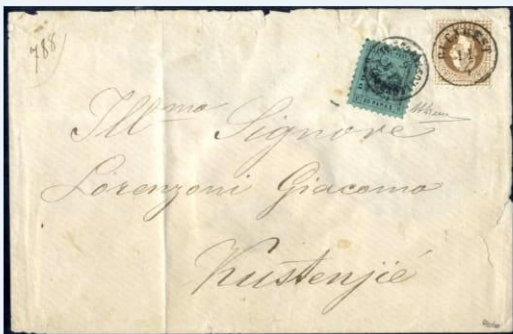 788
BUCAREST
Ill.mo Signore
Lorenzoni Giacomo
Kustenjié